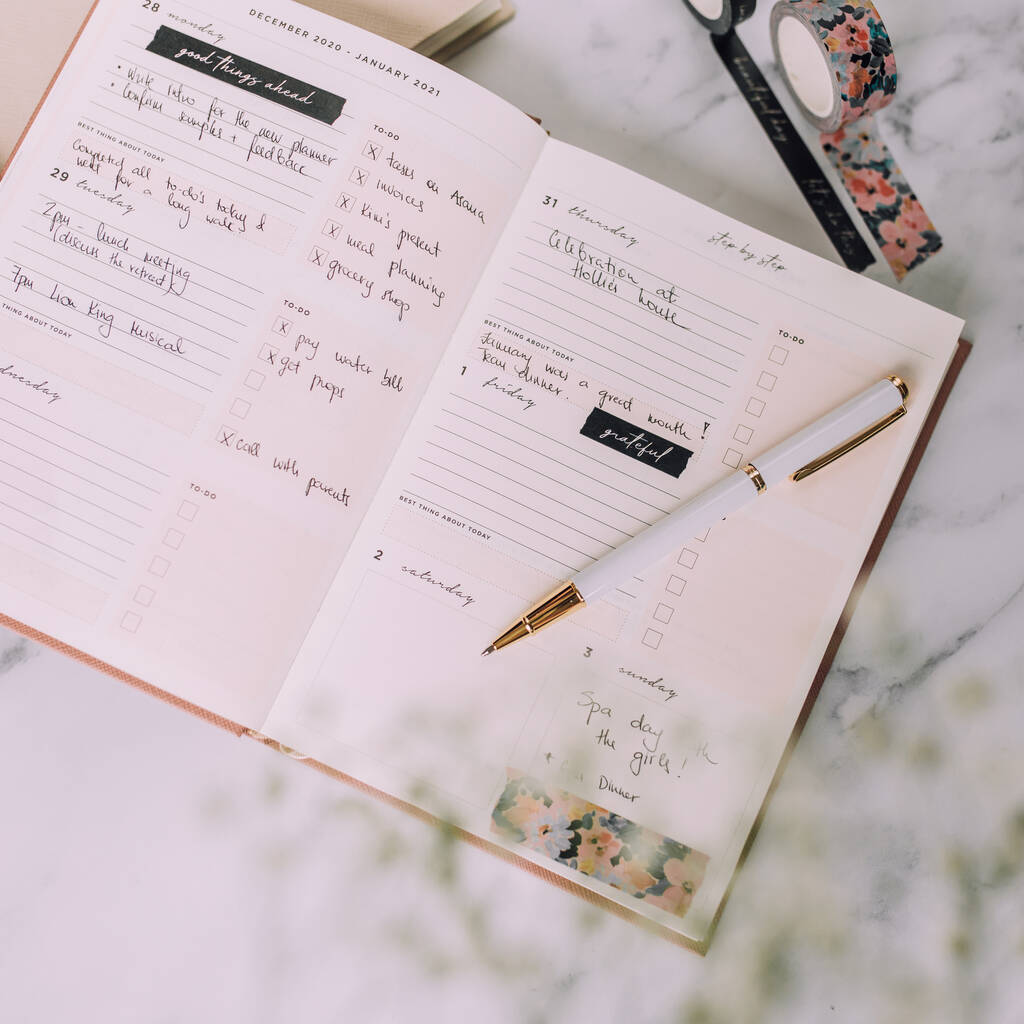 DECEMBER 2020 - JANUARY 2021
28 monday
good things ahead
• Write intro for the new planner
• Confirm samples + feedback
BEST THING ABOUT TODAY
Completed all to-do's today &
went for a long walk.
TO-DO
X tasks on Asana
X invoices
X Kim's present
X meal planning
X grocery shop
29 tuesday
2pm - lunch meeting
(discuss the retreat)
7pm Lion King Musical
THING ABOUT TODAY
TO-DO
X pay water bill
X get props
X call with parents
TO-DO
step by step
31 thursday
Celebration at
Hollies house
BEST THING ABOUT TODAY
January was a great month!
Team dinner.
TO-DO
1 friday
grateful
BEST THING ABOUT TODAY
2 saturday
3 sunday
Spa day
the girls!
+ Dinner
beautiful day